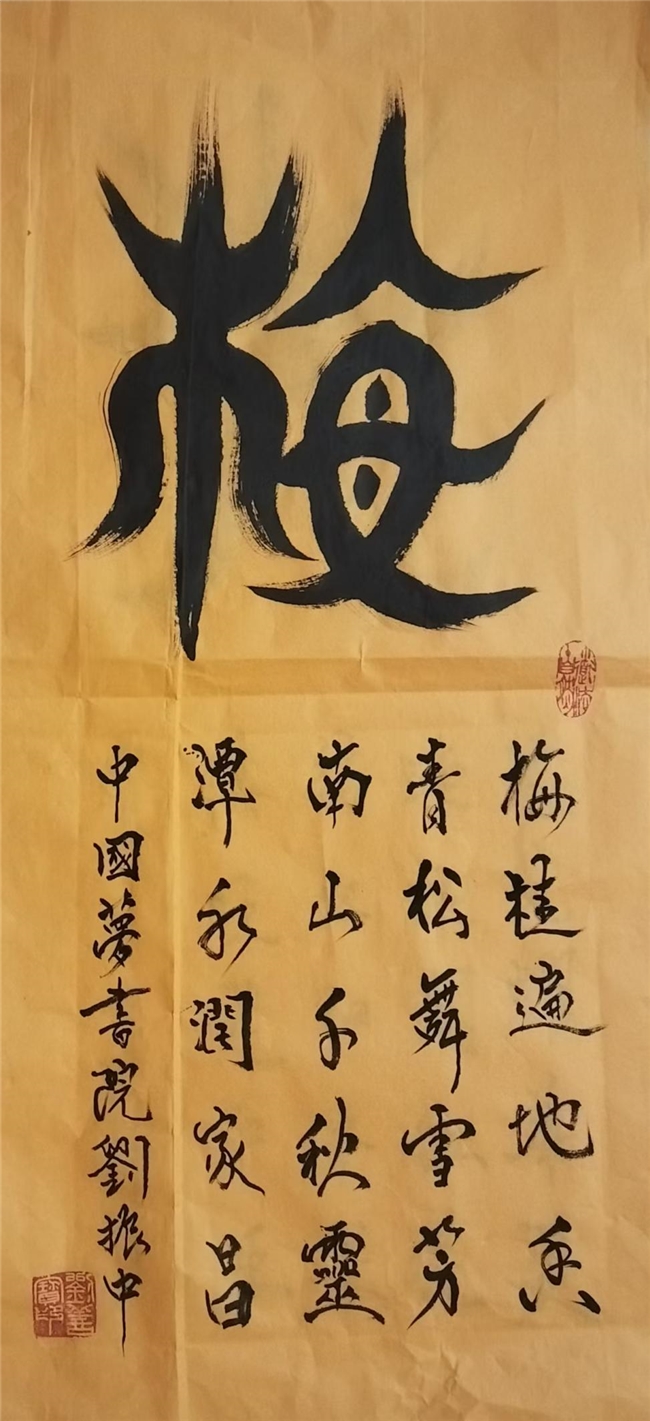 梅
梅桂遍地香
青松舞雪芳
南山千秋靈
潭水潤家昌
中國夢書院劉振中